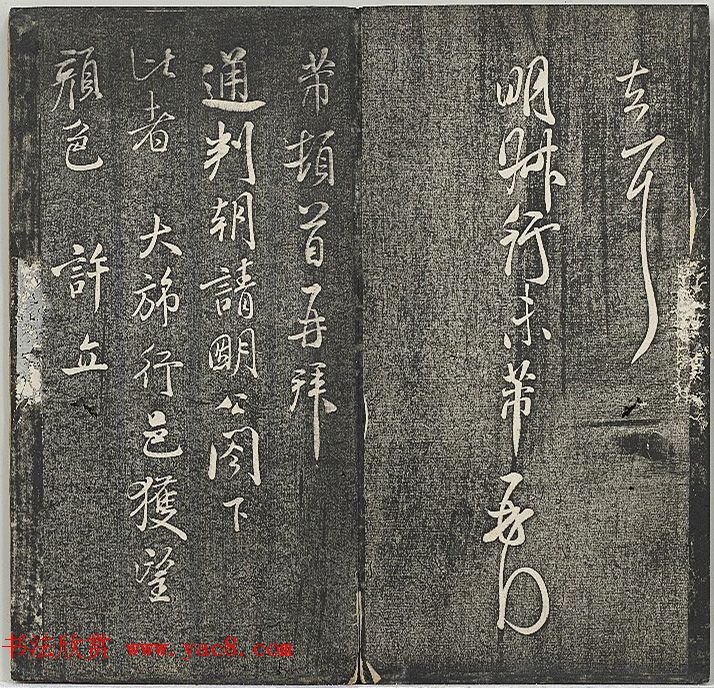 去耳
明叔行來芾再
芾頓首再拜
通判朝請明公閤下
比者大旆行邑獲望
顏色許立
书法欣赏 www.yac8.com